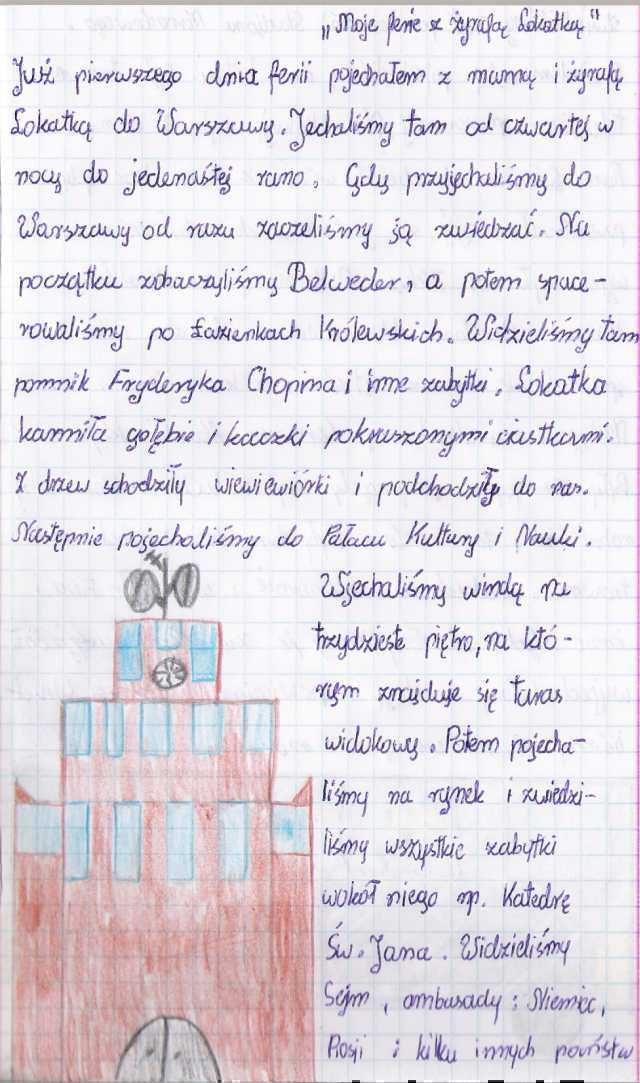 „Moje ferie z żyrafą Lokatką"
Już pierwszego dnia ferii pojechałem z mamą i żyrafą
Lokatką do Warszawy. Jechaliśmy tam od czwartej w
nocy do jedenastej rano. Gdy przyjechaliśmy do
Warszawy od razu zaczeliśmy ją zwiedzać. Na
początku zobaczyliśmy Belweder, a potem space-
rowaliśmy po Łazienkach Królewskich. Widzieliśmy tam
pomnik Fryderyka Chopina i inne zabytki. Lokatka
karmiła gołębie i kaczki pokruszonymi ciastkami.
Z drzew schodziły wiewiewiórki i podchodziły do nas.
Następnie pojechaliśmy do Pałacu Kultury i Nauki.
Wjechaliśmy windą na
trzydzieste piętro, na któ-
rym znajduje się taras
widokowy. Potem pojecha-
liśmy na rynek i zwiedzi-
liśmy wszystkie zabytki
wokół niego np. Katedrę
Św. Jana. Widzieliśmy
Sejm, ambasady: Niemiec,
Rosji i kilku innych państw